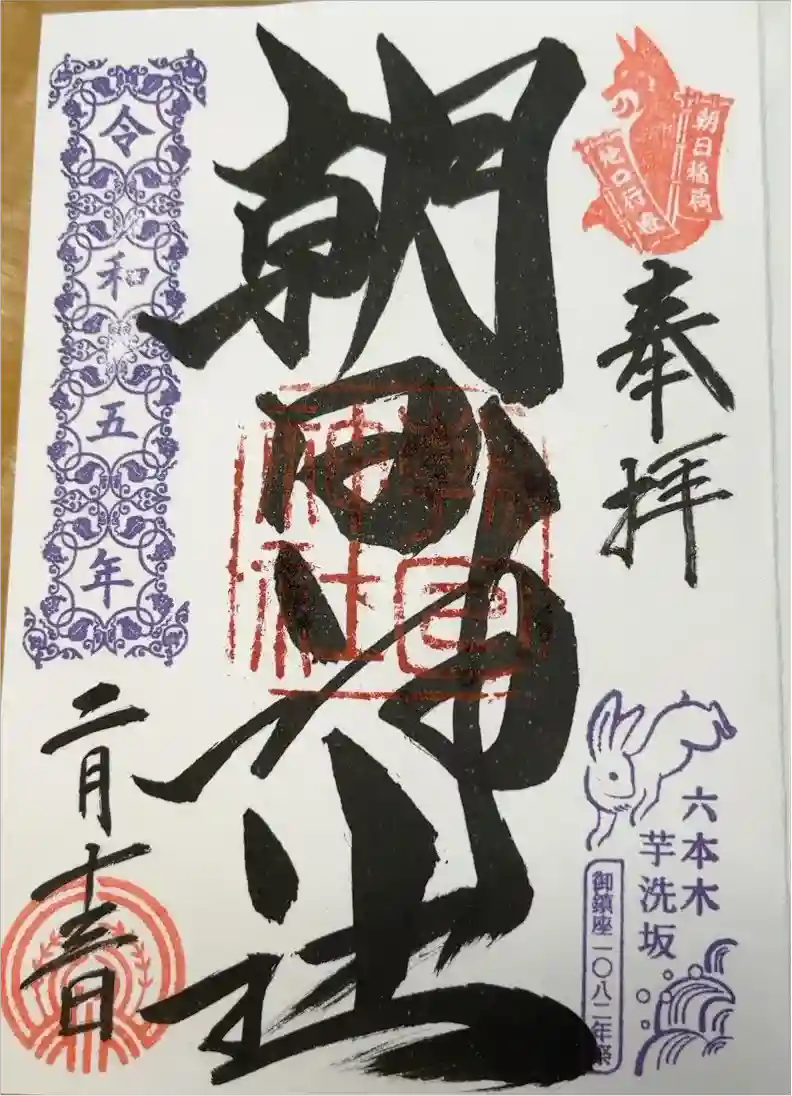 朝日稲荷
奉拝
六本木
芋洗坂
御鎮座一〇八二年祭
朝日神社
朝日神社
令和五年
二月十三日